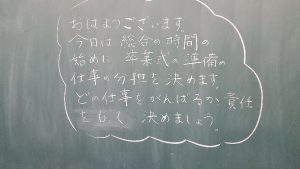 おはようございます。
今日は総合の時間の
始めに卒業式の準備の
仕事の分担を決めます。
どの仕事をがんばるか、責任
をもって決めましょう。